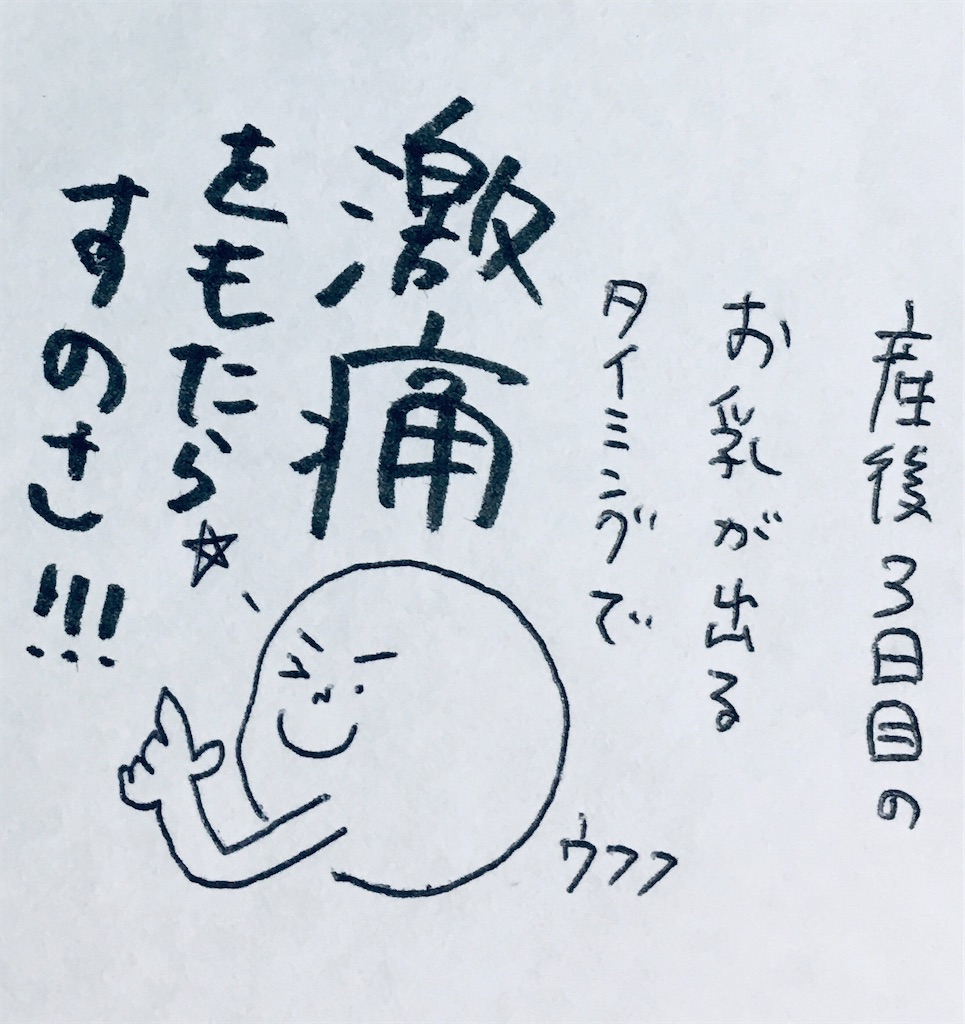 産後3日目の
お乳が出る
タイミングで
激痛
をもたら☆
すのさ!!!
ウフフ